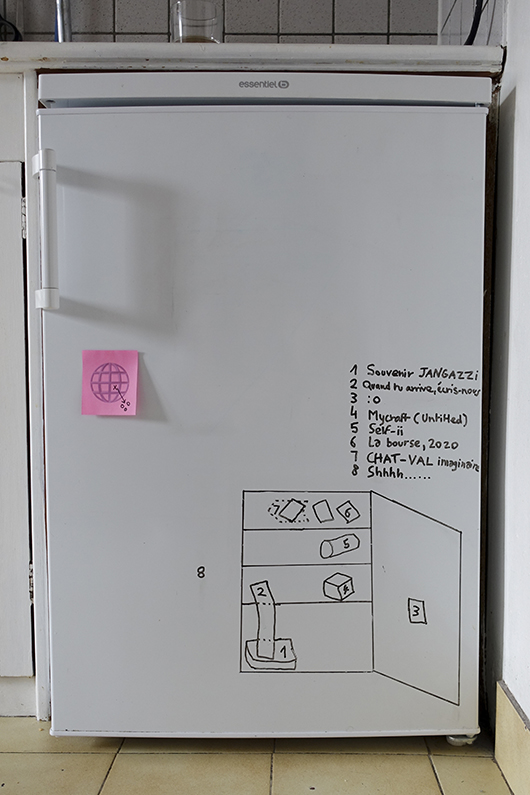 essentiel b
1 Souvenir JANGAZZI
2 Quand tu arrive, écris-nous
3 :o
4 Mycraft (Untitled)
5 Self-ii
6 La bourse, 2020
7 CHAT-VAL imaginaire
8 Shhhh......
7 6
5
8
2 4
3
1